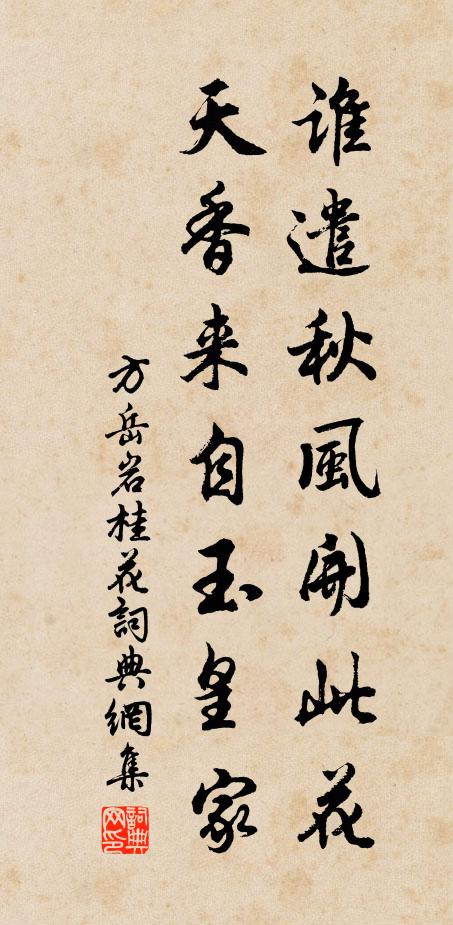 谁遣秋風開此花
天香来自玉皇家
方岳岩桂花詞典網集
詞典网印